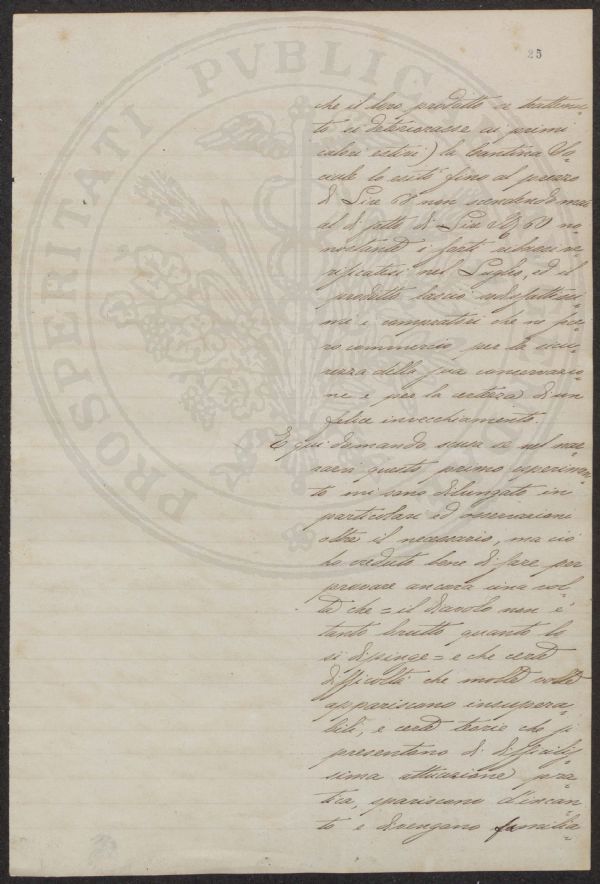 25
PROSPERITATI PVBLICAE
che il loro prodotto si
to si deteriorasse ai primi
calori estivi) la Cantina So=
ciale lo fino al prezzo
di Lire non scendendo mai
al di sotto di Lire 50 no=
nostante i forti ve=
rificatisi nel Luglio, ed il
prodotto lasciò sodisfattissi=
mi i compratori che ne fece=
ro commercio, per la sicu=
rezza della sua conservazio=
ne e per la certezza di un
felice invecchiamento.
E qui domando scusa se nel nar=
rarvi questo primo esperimen=
to mi sono dilungato in
particolari ed osservazioni
oltre il necessario, ma ciò
ho creduto bene di fare per
provare ancora una vol=
ta che = il diavolo non è
tanto brutto quanto lo
si dipinge = e che certe
difficoltà che molte volte
appariscono insupera=
bili, e certe teorie che si
presentano di difficilis=
sima attuazione pra=
tica, spariscono d'incan=
to e divengano familia=